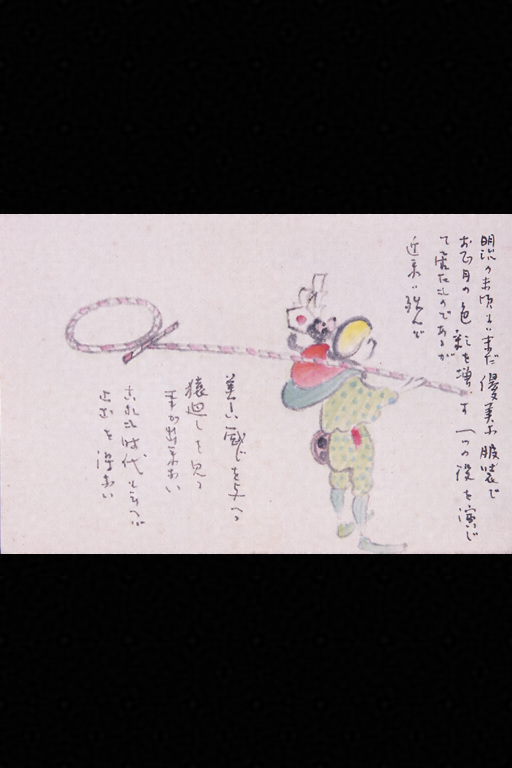 明治の末頃はまだ優美な服装で
お正月の色彩を増す一つの役を演じ
て居たものであるが
近来は殆んど
美しい感じを与へる
猿廻しを見る
事が出来ない
これも時代と云へば
止むを得ない